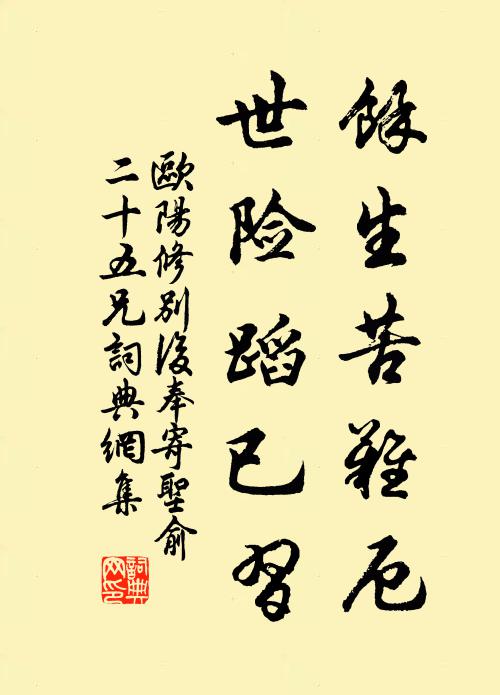 餘生苦難厄
世险蹈已習
歐陽修別後奉寄聖俞
二十五兄詞典網集
詞典网印